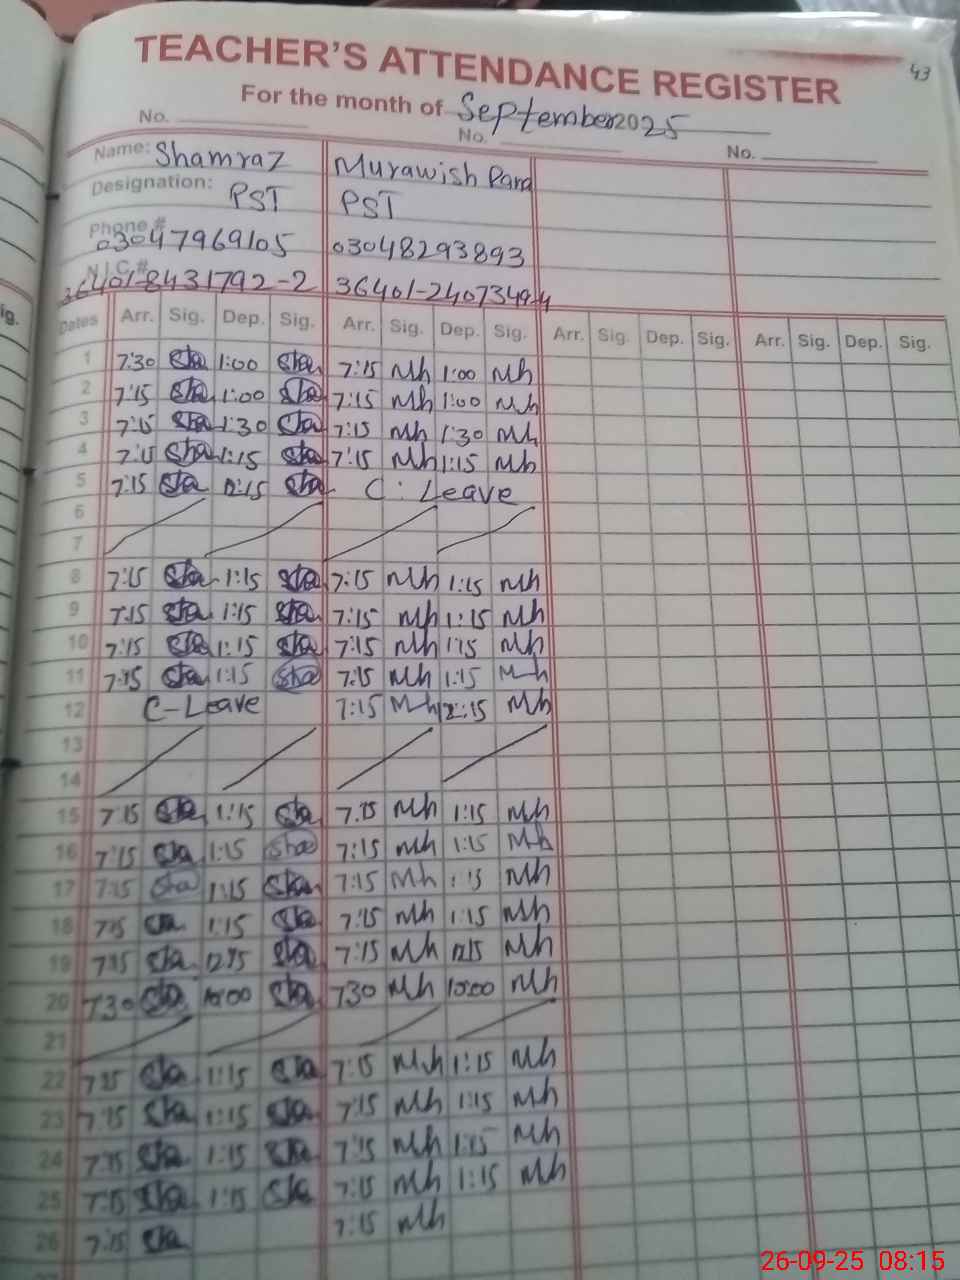 43
TEACHER'S ATTENDANCE REGISTER
For the month of September 2025
No. No. No.
Name: Shamraz Murawish
Designation: PST PST
Phone # 03047969105 03048293893
N.I.C # 36401-8431792-2 36401-2407349-4
Dates Arr. Sig. Dep. Sig. Arr. Sig. Dep. Sig. Arr. Sig. Dep. Sig. Arr. Sig. Dep. Sig.
1 7:30 sha 1:00 sha 7:15 Mh 1:00 Mh
2 7:15 sha 1:00 sha 7:15 Mh 1:00 Mh
3 7:15 sha 1:30 sha 7:15 Mh 1:30 Mh
4 7:15 sha 1:15 sha 7:15 Mh 1:15 Mh
5 7:15 sha 12:15 sha C: Leave
6
7
8 7:15 sha 1:15 sha 7:15 Mh 1:15 Mh
9 7:15 sha 1:15 sha 7:15 Mh 1:15 Mh
10 7:15 sha 1:15 sha 7:15 Mh 1:15 Mh
11 7:15 sha 1:15 sha 7:15 Mh 1:15 Mh
12 C-Leave 7:15 Mh 12:15 Mh
13
14
15 7:15 sha 1:15 sha 7:15 Mh 1:15 Mh
16 7:15 sha 1:15 sha 7:15 Mh 1:15 Mh
17 7:15 sha 1:15 sha 7:15 Mh 1:15 Mh
18 7:15 sha 1:15 sha 7:15 Mh 1:15 Mh
19 7:15 sha 12:15 sha 7:15 Mh 12:15 Mh
20 7:30 sha 10:00 sha 7:30 Mh 10:00 Mh
21
22 7:15 sha 1:15 sha 7:15 Mh 1:15 Mh
23 7:15 sha 1:15 sha 7:15 Mh 1:15 Mh
24 7:15 sha 1:15 sha 7:15 Mh 1:15 Mh
25 7:15 sha 1:15 sha 7:15 Mh 1:15 Mh
26 7:15 sha 7:15 Mh
26-09-25 08:15